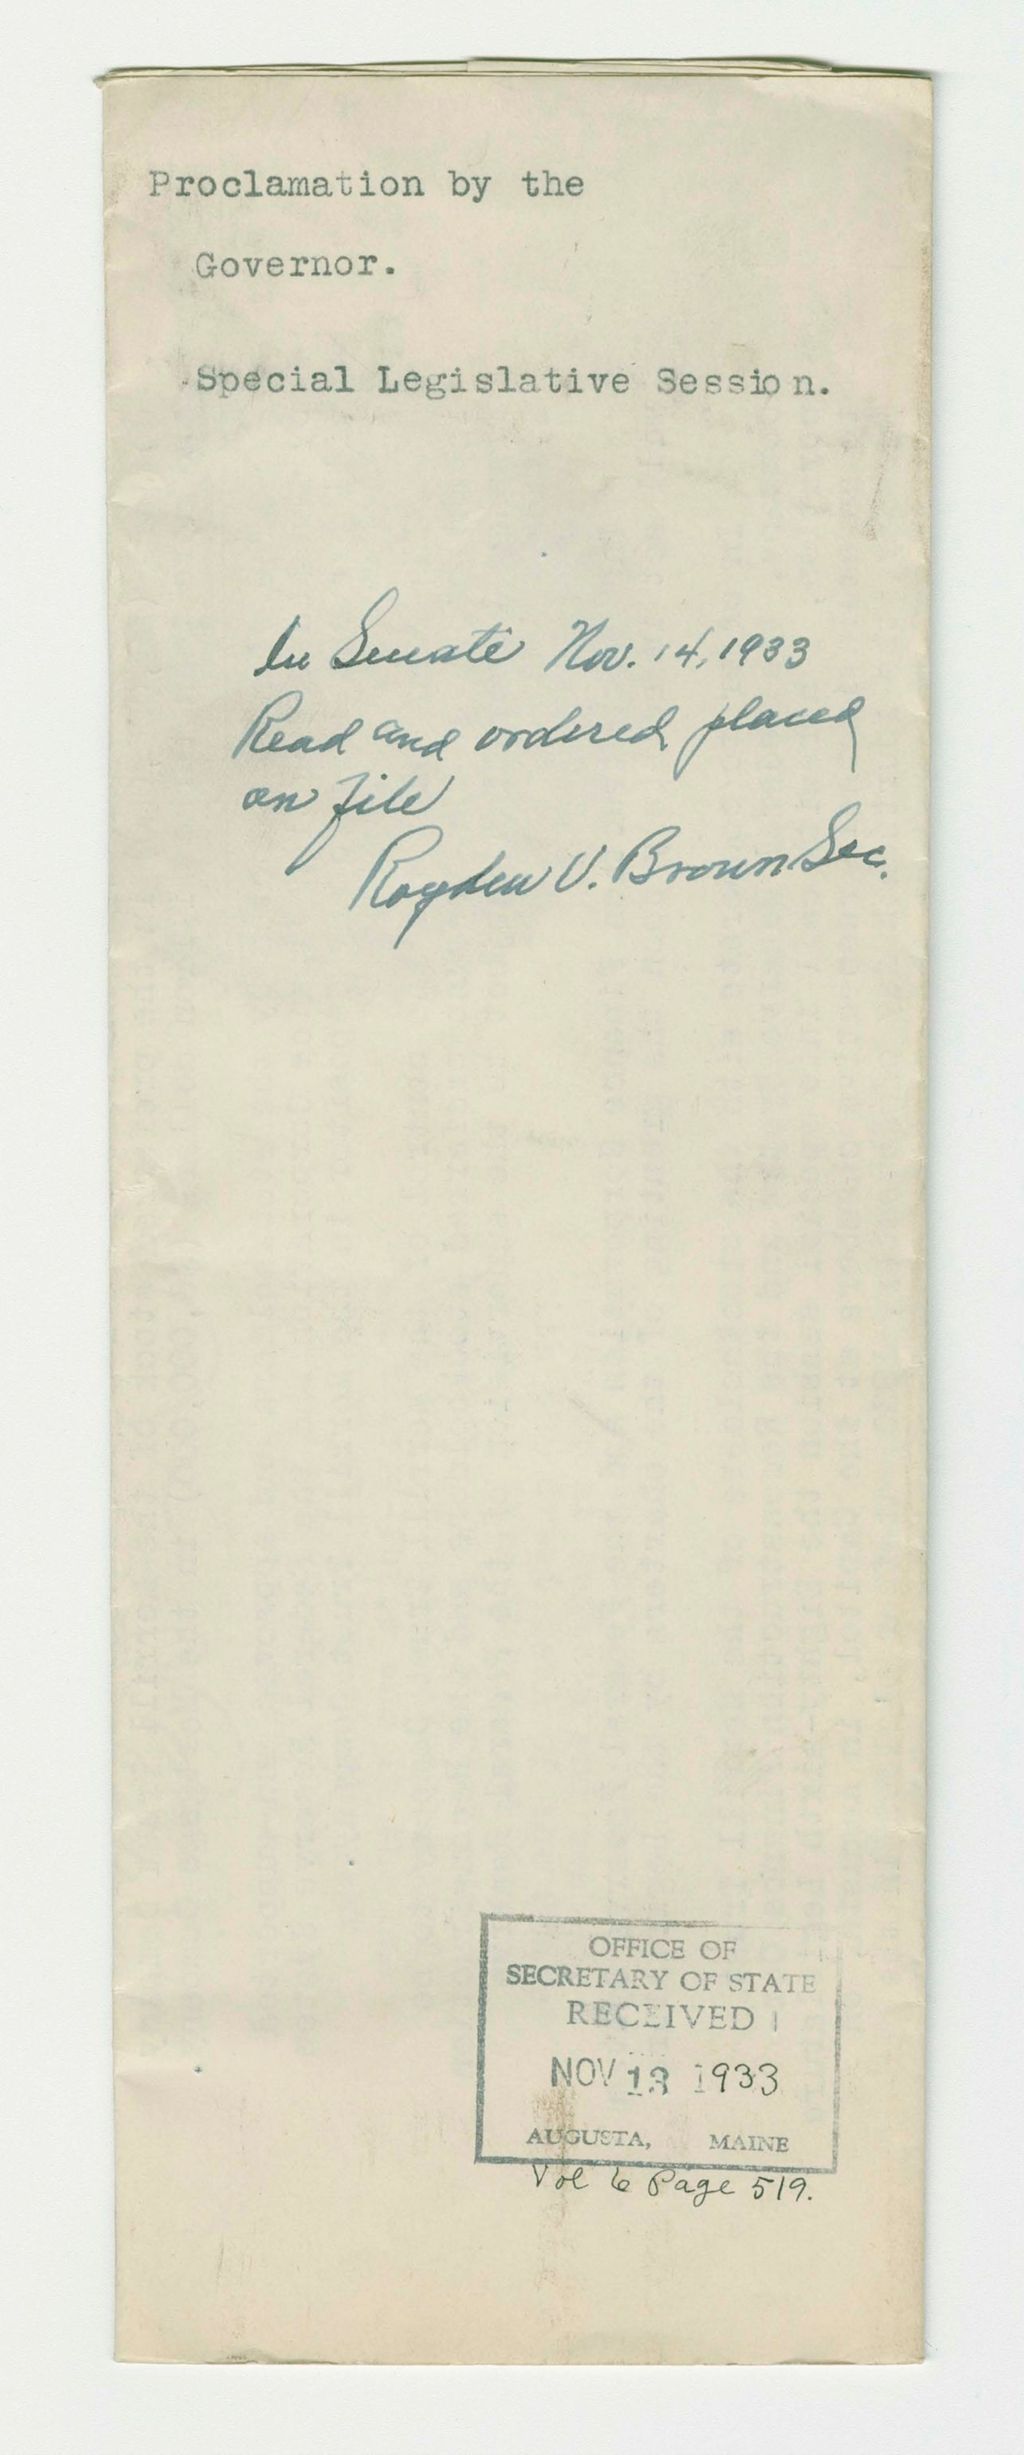 Proclamation by the
Governor.
Special Legislative Session.
In Senate Nov. 14, 1933
Read and ordered placed
on file
Royden V. Brown Sec.
OFFICE OF
SECRETARY OF STATE
RECEIVED
NOV 13 1933
AUGUSTA, MAINE
Vol 6 Page 519.